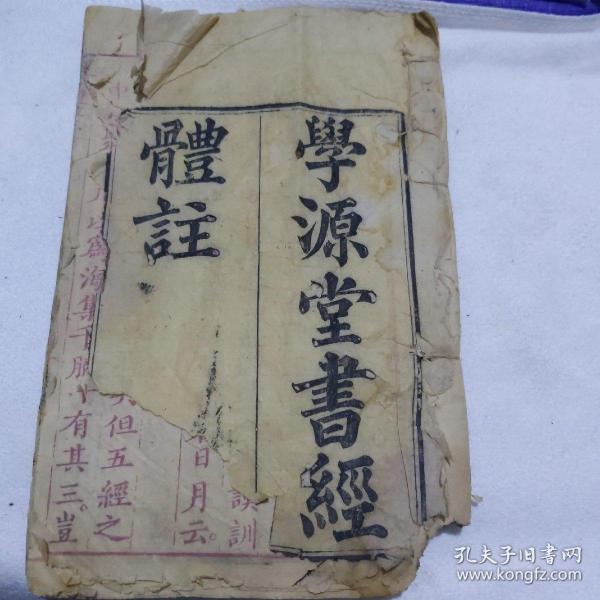 學源堂書經
體註
誤訓
日月云。
但五經之
為海集千腋十有其三。豈
孔夫子旧书网
www.kongfz.com